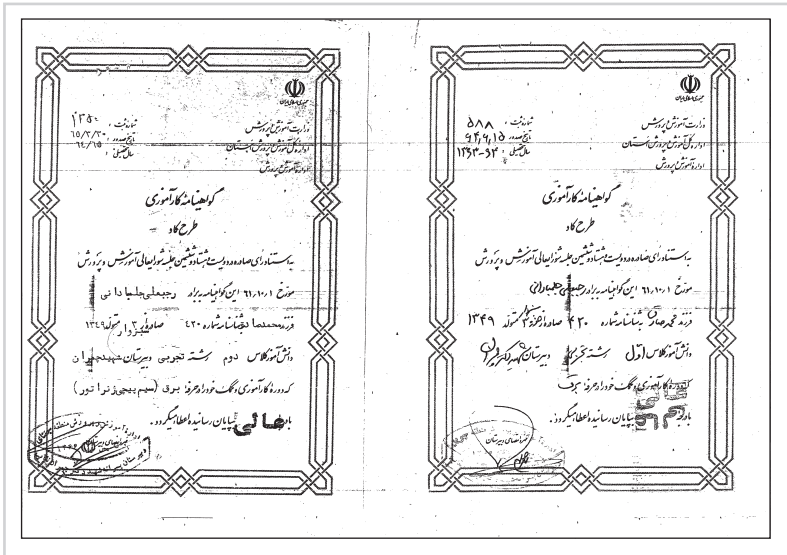 جمهوری اسلامی ایران
وزارت آموزش و پرورش
اداره کل آموزش و پرورش استان
اداره آموزش و پرورش
شماره ثبت: ۵۸۸
تاریخ صدور: ۶۴,۹,۱۵
سال تحصیلی: ۱۳۶۳-۶۴
گواهینامه کارآموزی
طرح کاد
به استناد رای صادره دویست و هشتاد و ششمین جلسه شورایعالی آموزش و پرورش
مورخ ۶۱,۱۰,۱ این گواهینامه به برادر رجبعلی جلمبادانی
فرزند محمد صادق به شناسنامه شماره ۴۲۰ صادره از متولد ۱۳۴۹
دانش آموز کلاس اول رشته تجربی دبیرستان شهید
که دوره کارآموزی و کمک خود را در حرفه: برق
با درجه بپایان رسانیده اعطا میگردد.
مهر و امضای دبیرستان
جمهوری اسلامی ایران
وزارت آموزش و پرورش
اداره کل آموزش و پرورش استان
اداره آموزش و پرورش
شماره ثبت: ۱۲۵۰
تاریخ صدور: ۶۵/۳/۲۰
سال تحصیلی: ۶۴/۶۵
گواهینامه کارآموزی
طرح کاد
به استناد رای صادره دویست و هشتاد و ششمین جلسه شورایعالی آموزش و پرورش
مورخ ۶۱,۱۰,۱ این گواهینامه به برادر رجبعلی جلمبادانی
فرزند محمد صادق به شناسنامه شماره ۴۲۰ صادره از سبزوار متولد ۱۳۴۹
دانش آموز کلاس دوم رشته تجربی دبیرستان شهید چمران
که دوره کارآموزی و کمک خود را در حرفه: برق (سیم پیچی ژنراتور)
با درجه عالی بپایان رسانیده اعطا میگردد.
مهر و امضای دبیرستان